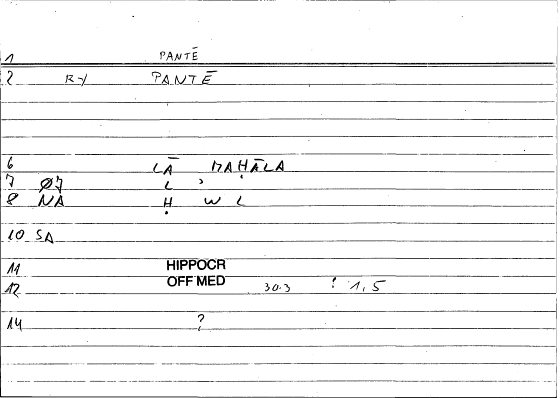 1 PANTĒ
2 R-/ PANTĒ
6 LĀ MAḤĀLA
7 Ø7 L ʾ
8 NA Ḥ W L
10 SA
11 HIPPOCR
12 OFF MED 30.3 : 1,5
14 ?